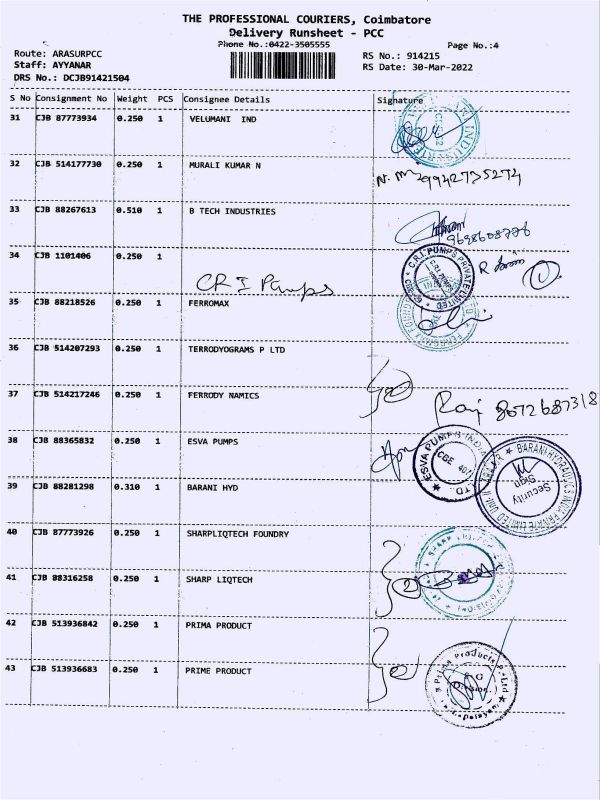 THE PROFESSIONAL COURIERS, Coimbatore
Delivery Runsheet - PCC
Phone No.:0422-3505555 Page No.:4
Route: ARASURPCC RS No.: 914215
Staff: AYYANAR RS Date: 30-Mar-2022
DRS No.: DCJB91421504
S No Consignment No Weight PCS Consignee Details Signature
31 CJB 87773934 0.250 1 VELUMANI IND
32 CJB 514177730 0.250 1 MURALI KUMAR N 9942735274
33 CJB 88267613 0.510 1 B TECH INDUSTRIES
34 CJB 1101406 0.250 1 CRI Pumps
C.R.I PUMPS PRIVATE LIMITED
35 CJB 88218526 0.250 1 FERROMAX
36 CJB 514207293 0.250 1 TERRODYOGRAMS P LTD
37 CJB 514217246 0.250 1 FERRODY NAMICS Raj 8072687318
38 CJB 88365832 0.250 1 ESVA PUMPS
ESVA PUMPS INDIA
39 CJB 88281298 0.310 1 BARANI HYD
BARANI HYDRAULICS INDIA PRIVATE LIMITED
Security
Sign
40 CJB 87773926 0.250 1 SHARPLIQTECH FOUNDRY
41 CJB 88316258 0.250 1 SHARP LIQTECH
42 CJB 513936842 0.250 1 PRIMA PRODUCT
43 CJB 513936683 0.250 1 PRIME PRODUCT
Prima Products P Ltd